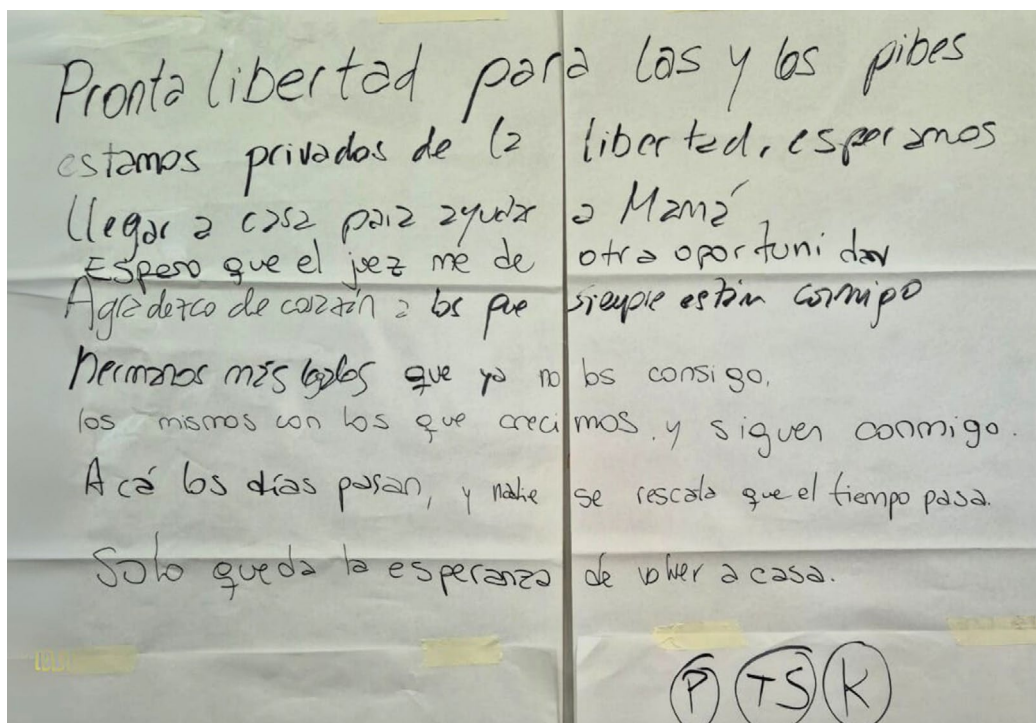 Pronta libertad para las y los pibes
estamos privados de la libertad, esperamos
llegar a casa para ayudar a Mamá
Espero que el juez me de otra oportunidad
Agradezco de corazón a los que siempre están conmigo
hermanos más que ya no los consigo,
los mismos con los que crecimos. y siguen conmigo.
Acá los días pasan, y nadie se rescata que el tiempo pasa.
Solo queda la esperanza de volver a casa.
P TS K